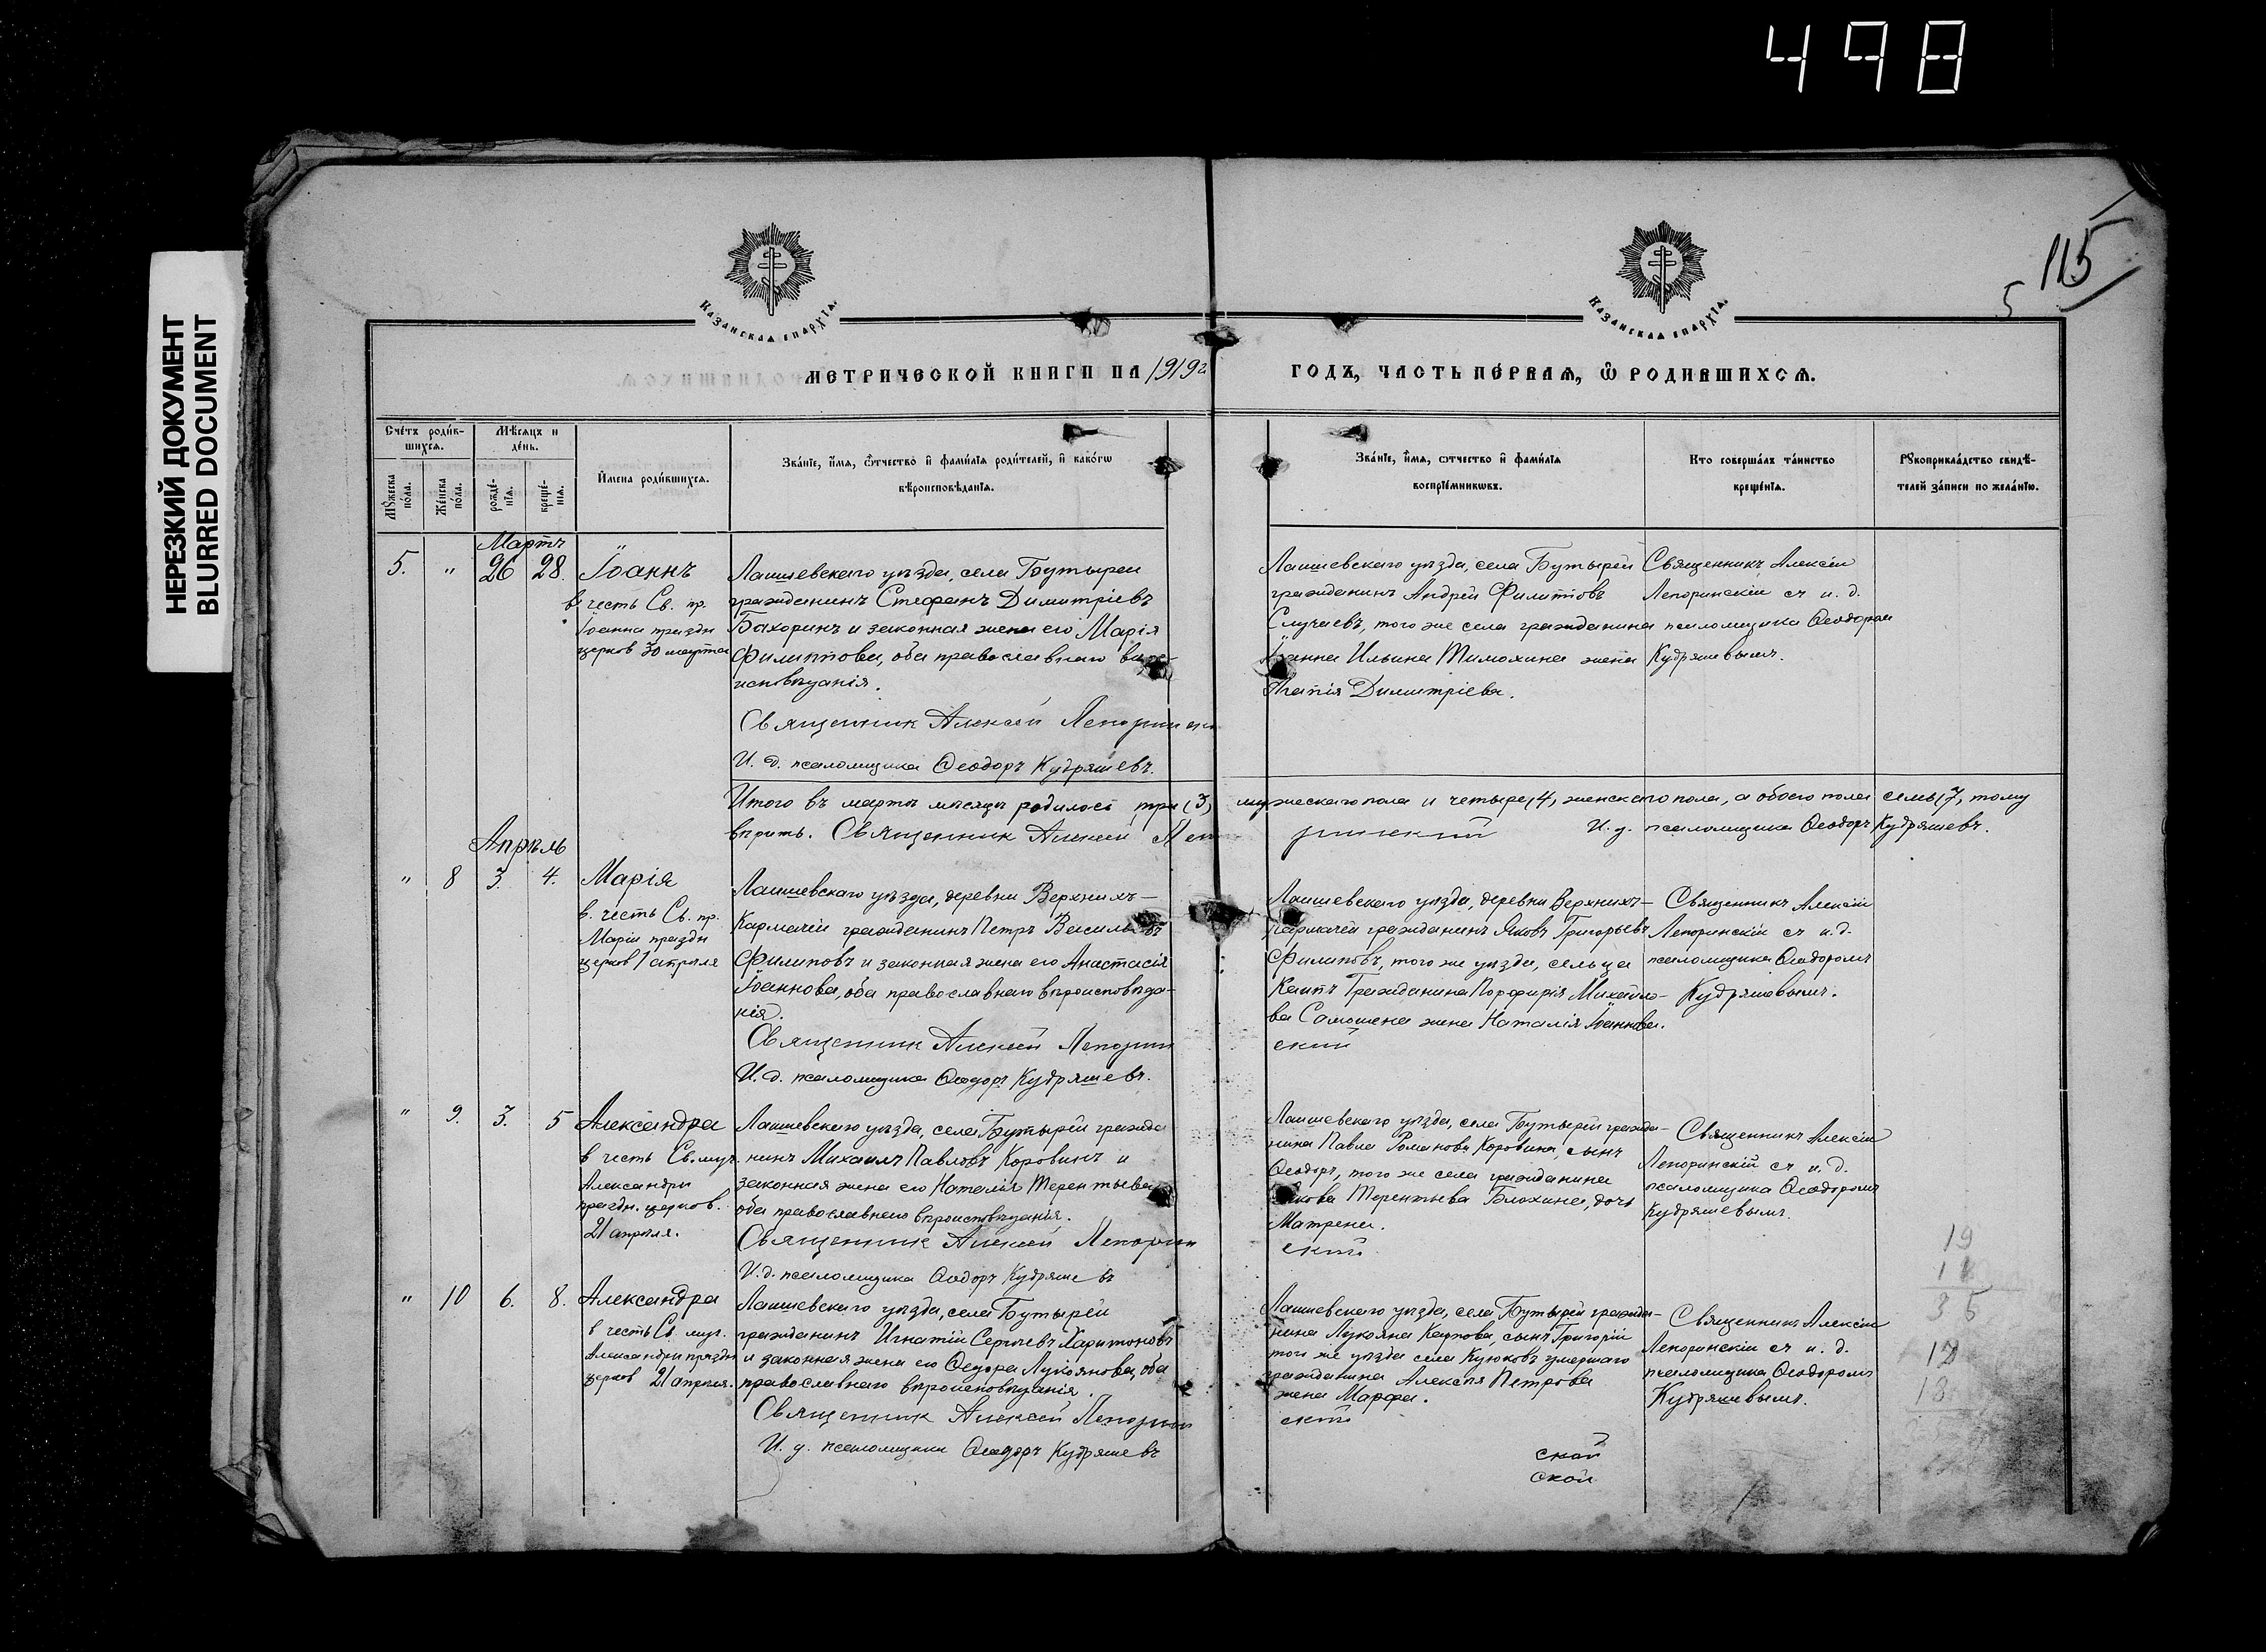 498
НЕРЕЗКИЙ ДОКУМЕНТ
BLURRED DOCUMENT
115
5
КАЗАНСКАЯ ЕПАРХІЯ
КАЗАНСКАЯ ЕПАРХІЯ
МЕТРИЧЕСКОЙ КНИГИ НА 1919 г
ГОДЪ, ЧАСТЬ ПЕРВАЯ, Ѡ РОДИВШИХСЯ.
Счетъ родив-
шихся.
Мѣсяцъ и
день.
Мужеска
пола.
Женска
пола.
рожде-
нія.
креще-
нія.
Имена родившихся.
Званіе, имя, отчество и фамилія родителей, и какогѡ
вѣроисповѣданія.
Званіе, имя, отчество и фамилія
воспріемниковъ.
Кто совершалъ таинство
крещенія.
Рукоприкладство свидѣ-
телей записи по желанію.
Мартъ
5. " 26 28. Іоаннъ
в честь Св. пр.
Іоанна праздн
церков 30 марта
Лаишевскаго уѣзда, села Бутырей
гражданинъ Стефанъ Димитріевъ
Бахоринъ и законная жена его Марія
Филиппова, оба православнаго вѣро-
исповѣданія.
Священник Алексей Лепоринск
И. д. псаломщика Ѳеодоръ Кудряшевъ.
Лаишевскаго уѣзда, села Бутырей
гражданинъ Андрей Филиппов
Случаевъ, того же села гражданина
Іоанна Ильина Тимохина жена
Агапія Димитріева.
Священникъ Алексій
Лепоринскій съ и. д.
псаломщика Ѳеодором
Кудряшевымъ.
Итого въ мартѣ мѣсяцѣ родилось три (3) мужескаго пола и четыре (4) женскаго пола, а обоего пола семь (7), тому
вѣрить. Священник Алексей Лепоринский И. д. псаломщика Ѳеодоръ Кудряшевъ.
Апрѣль
" 8 3. 4. Марія
в. честь Св. пр.
Маріи праздн
церков 1 апрѣля
Лаишевскаго уѣзда, деревни Верхнихъ-
Кармачей гражданинъ Петръ Васильевъ
Филиповъ и законная жена его Анастасія
Іоаннова, оба православнаго вѣроисповѣда-
нія.
Священник Алексей Лепорин
И. д. псаломщика Ѳеодоръ Кудряшевъ.
Лаишевскаго уѣзда, деревни Верхнихъ-
Кармачей гражданинъ Яковъ Григорьевъ
Филиповъ, того же уѣзда, сельца
Гражданина Порфирія Михайло-
ва Самошена жена Наталія Іоаннова.
ский
Священникъ Алексій
Лепоринскій съ и. д.
псаломщика Ѳеодоромъ
Кудряшевымъ.
" 9. 3. 5 Александра
в честь Св. муч.
Александры
праздн. церков.
21 апрѣля.
Лаишевскаго уѣзда, села Бутырей гражда
нинъ Михаилъ Павловъ Коровинъ и
законная жена его Наталія Терентьева
оба православнаго вѣроисповѣданія.
Священник Алексей Лепорин
И. д. псаломщика Ѳеодоръ Кудряшевъ
Лаишевскаго уѣзда, села Бутырей гражда-
нина Павла Романова Коровина, сынъ
Ѳеодоръ, того же села гражданина
Якова Терентьева Блохина, дочь
Матрена.
ский
Священникъ Алексій
Лепоринскій съ и. д.
псаломщика Ѳеодоромъ
Кудряшевымъ.
" 10 6. 8. Александра
в честь Св. муч.
Александры праздн
церков 21 апрѣля.
Лаишевскаго уѣзда, села Бутырей
гражданинъ Игнатій Сергѣевъ Харитоновъ
и законная жена его Ѳедора Лукоянова, оба
православнаго вѣроисповѣданія.
Священник Алексей Лепорин
И. д. псаломщика Ѳеодоръ Кудряшевъ
Лаишевскаго уѣзда, села Бутырей гражда-
нина Лукояна Карпова, сынъ Григорій
того же уѣзда села Куюковъ умершаго
гражданина Алексѣя Петрова
жена Марфа.
ский
Священникъ Алексій
Лепоринскій съ и. д.
псаломщика Ѳеодоромъ
Кудряшевымъ.
ской
ской
19